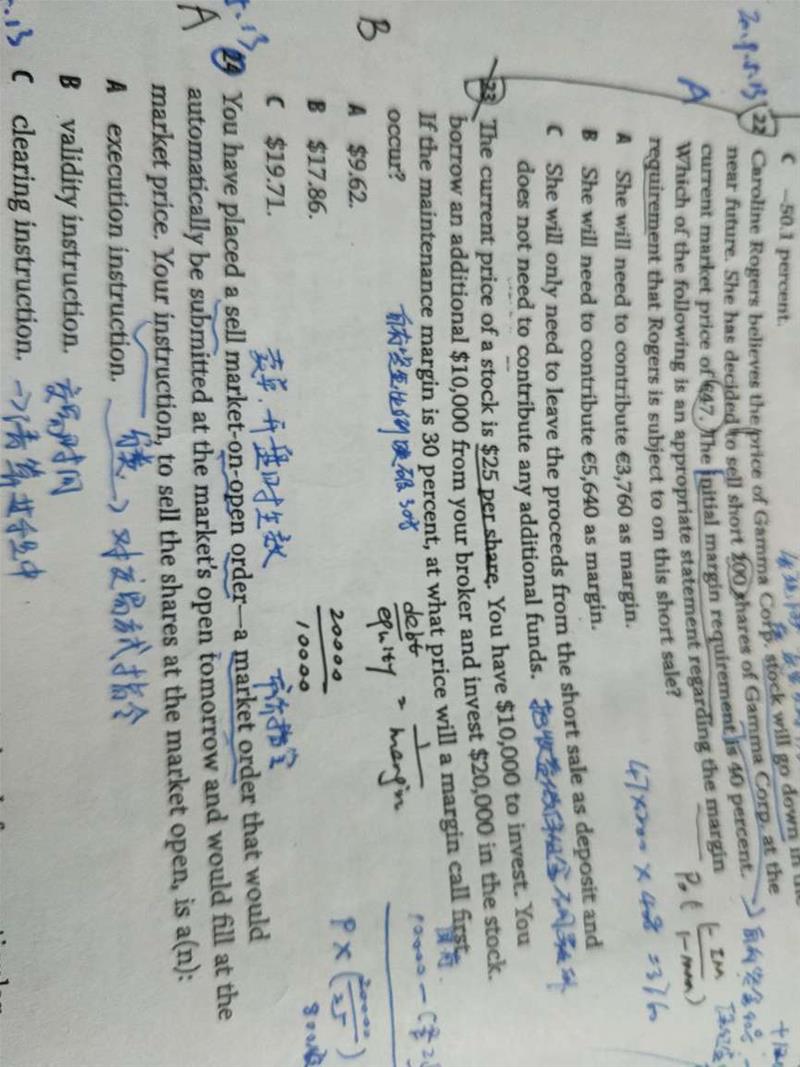 C -50.1 percent.
2019.5.13 22 Caroline Rogers believes the price of Gamma Corp. stock will go down in the
near future. She has decided to sell short 200 shares of Gamma Corp. at the
A current market price of €47. The initial margin requirement is 40 percent.
Which of the following is an appropriate statement regarding the margin
requirement that Rogers is subject to on this short sale?
A She will need to contribute €3,760 as margin.
47×200×40% =3760
B She will need to contribute €5,640 as margin.
C She will only need to leave the proceeds from the short sale as deposit and
does not need to contribute any additional funds.
23 The current price of a stock is $25 per share. You have $10,000 to invest. You
borrow an additional $10,000 from your broker and invest $20,000 in the stock.
If the maintenance margin is 30 percent, at what price will a margin call first
B occur?
debt
equity = 1
margin
A $9.62.
B $17.86.
20000
10000
C $19.71.
卖单,开盘时生效
5.13 24 You have placed a sell market-on-open order—a market order that would
A automatically be submitted at the market's open tomorrow and would fill at the
market price. Your instruction, to sell the shares at the market open, is a(n):
A execution instruction. → 对交易方式指令
B validity instruction. 交易时间
.13 C clearing instruction. →清算过程中